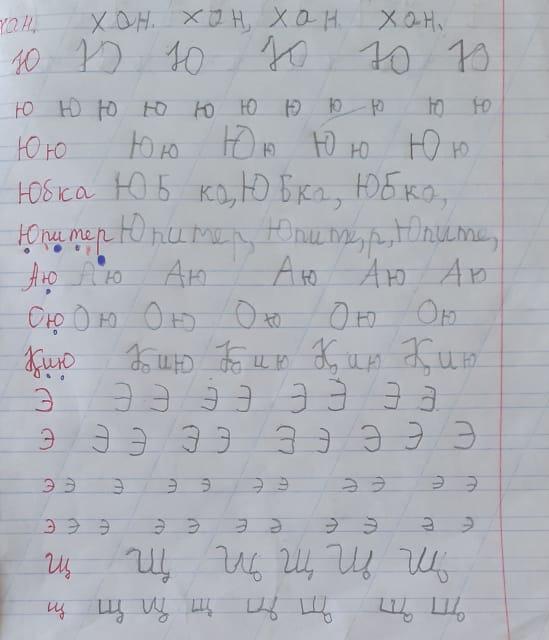 хан. хан. хан, хан хан.
Ю Ю Ю Ю Ю Ю
ю ю ю ю ю ю ю ю ю ю ю
Юю Юю Юю Юю Юю
Юбка ЮБ ка, ЮБка, ЮБка,
Юпитер Юпитер, Юпите,р, Юпите,
Аю Аю Аю Аю Аю Аю
Ою Ою Ою Ою Ою Ою
Қию Қию Қию Қию Қию
Э Э Э Э Э Э Э Э Э
Э Э Э Э Э Э Э Э Э Э
э э э э э э э э э э э
э э э э э э э э э э э
Щ Щ Щ Щ Щ Щ
щ щ щ щ щ щ щ щ